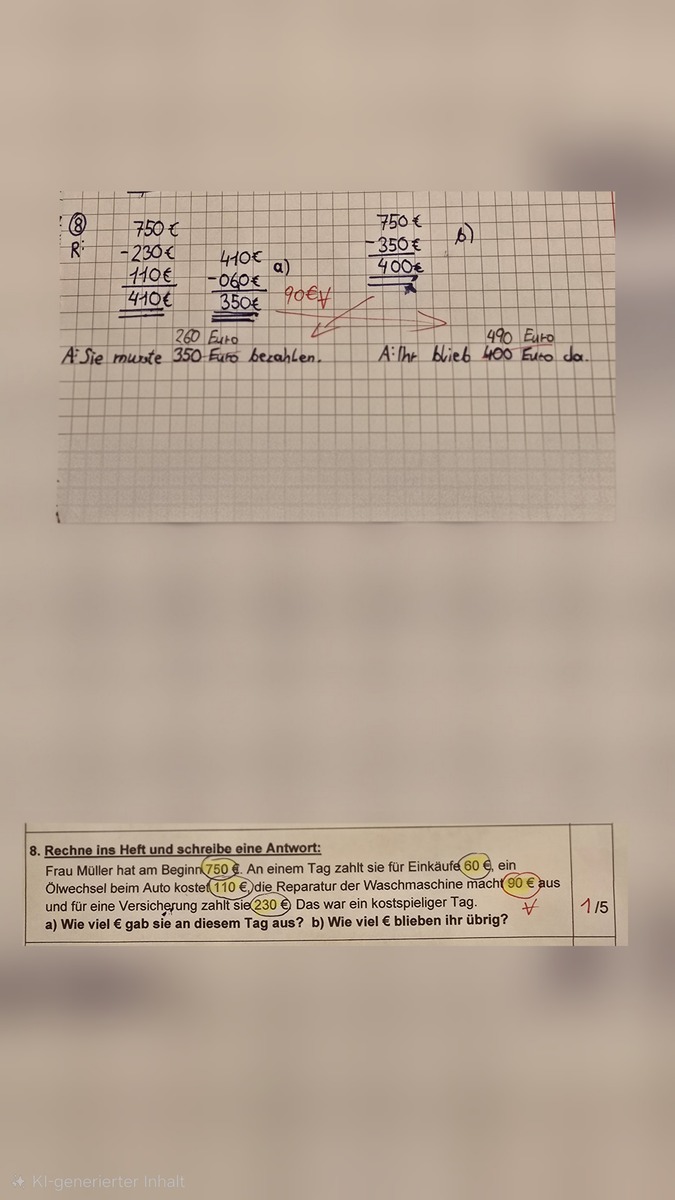 ⑧ 750 € 750 €
R: -230€ 410€ a) -350€ b)
110€ -060€ 400€
410€ 350€ 90€ ∀
260 Euro 490 Euro
A: Sie musste 350 Euro bezahlen. A: Ihr blieb 400 Euro da.
8. Rechne ins Heft und schreibe eine Antwort:
Frau Müller hat am Beginn 750 €. An einem Tag zahlt sie für Einkäufe 60 €, ein
Ölwechsel beim Auto kostet 110 €, die Reparatur der Waschmaschine macht 90 € aus
und für eine Versicherung zahlt sie 230 €. Das war ein kostspieliger Tag. ∀
a) Wie viel € gab sie an diesem Tag aus? b) Wie viel € blieben ihr übrig?
1/5
KI-generierter Inhalt